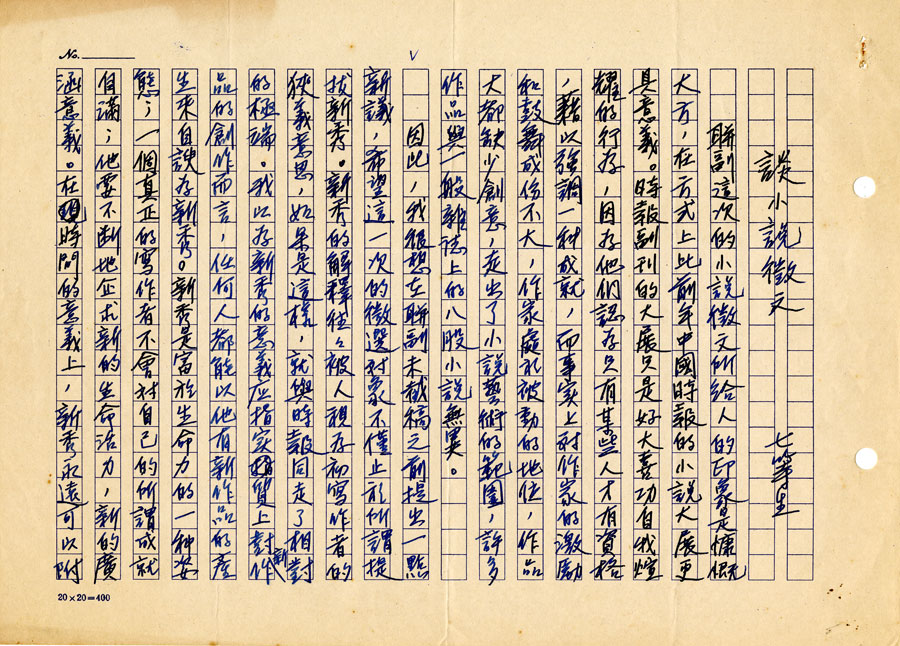 談小說徵文
七等生
聯副這次的小說徵文所給人的印象是慷慨
大方，在方式上比前年中國時報的小說大展更
具意義。時報副刊的大展只是好大喜功自我煊
耀的行為，因為他們認為只有某些人才有資格
，藉以強調一種成就，而事實上對作家的激勵
和鼓舞成份不大，作家處於被動的地位，作品
大都缺少創意，走出了小說藝術的範圍，許多
作品與一般雜誌上的八股小說無異。
因此，我很想在聯副未截稿之前提出一點
新議，希望這一次的徵選對象不僅止於所謂提
拔新秀。新秀的解釋往々被人視為初寫作者的
狹義意思，如果是這樣，就與時報同走了相對
的極端。我以為新秀的意義應指實質上對新作
品的創作而言，任何人都能以他有新作品的產
生來自詡為新秀。新秀是富於生命力的一種姿
態；一個真正的寫作者不會對自己的所謂成就
自滿；他要不斷地企求新的生命活力，新的廣
涵意義。在現時間的意義上，新秀永遠可以附
No.
20×20=400